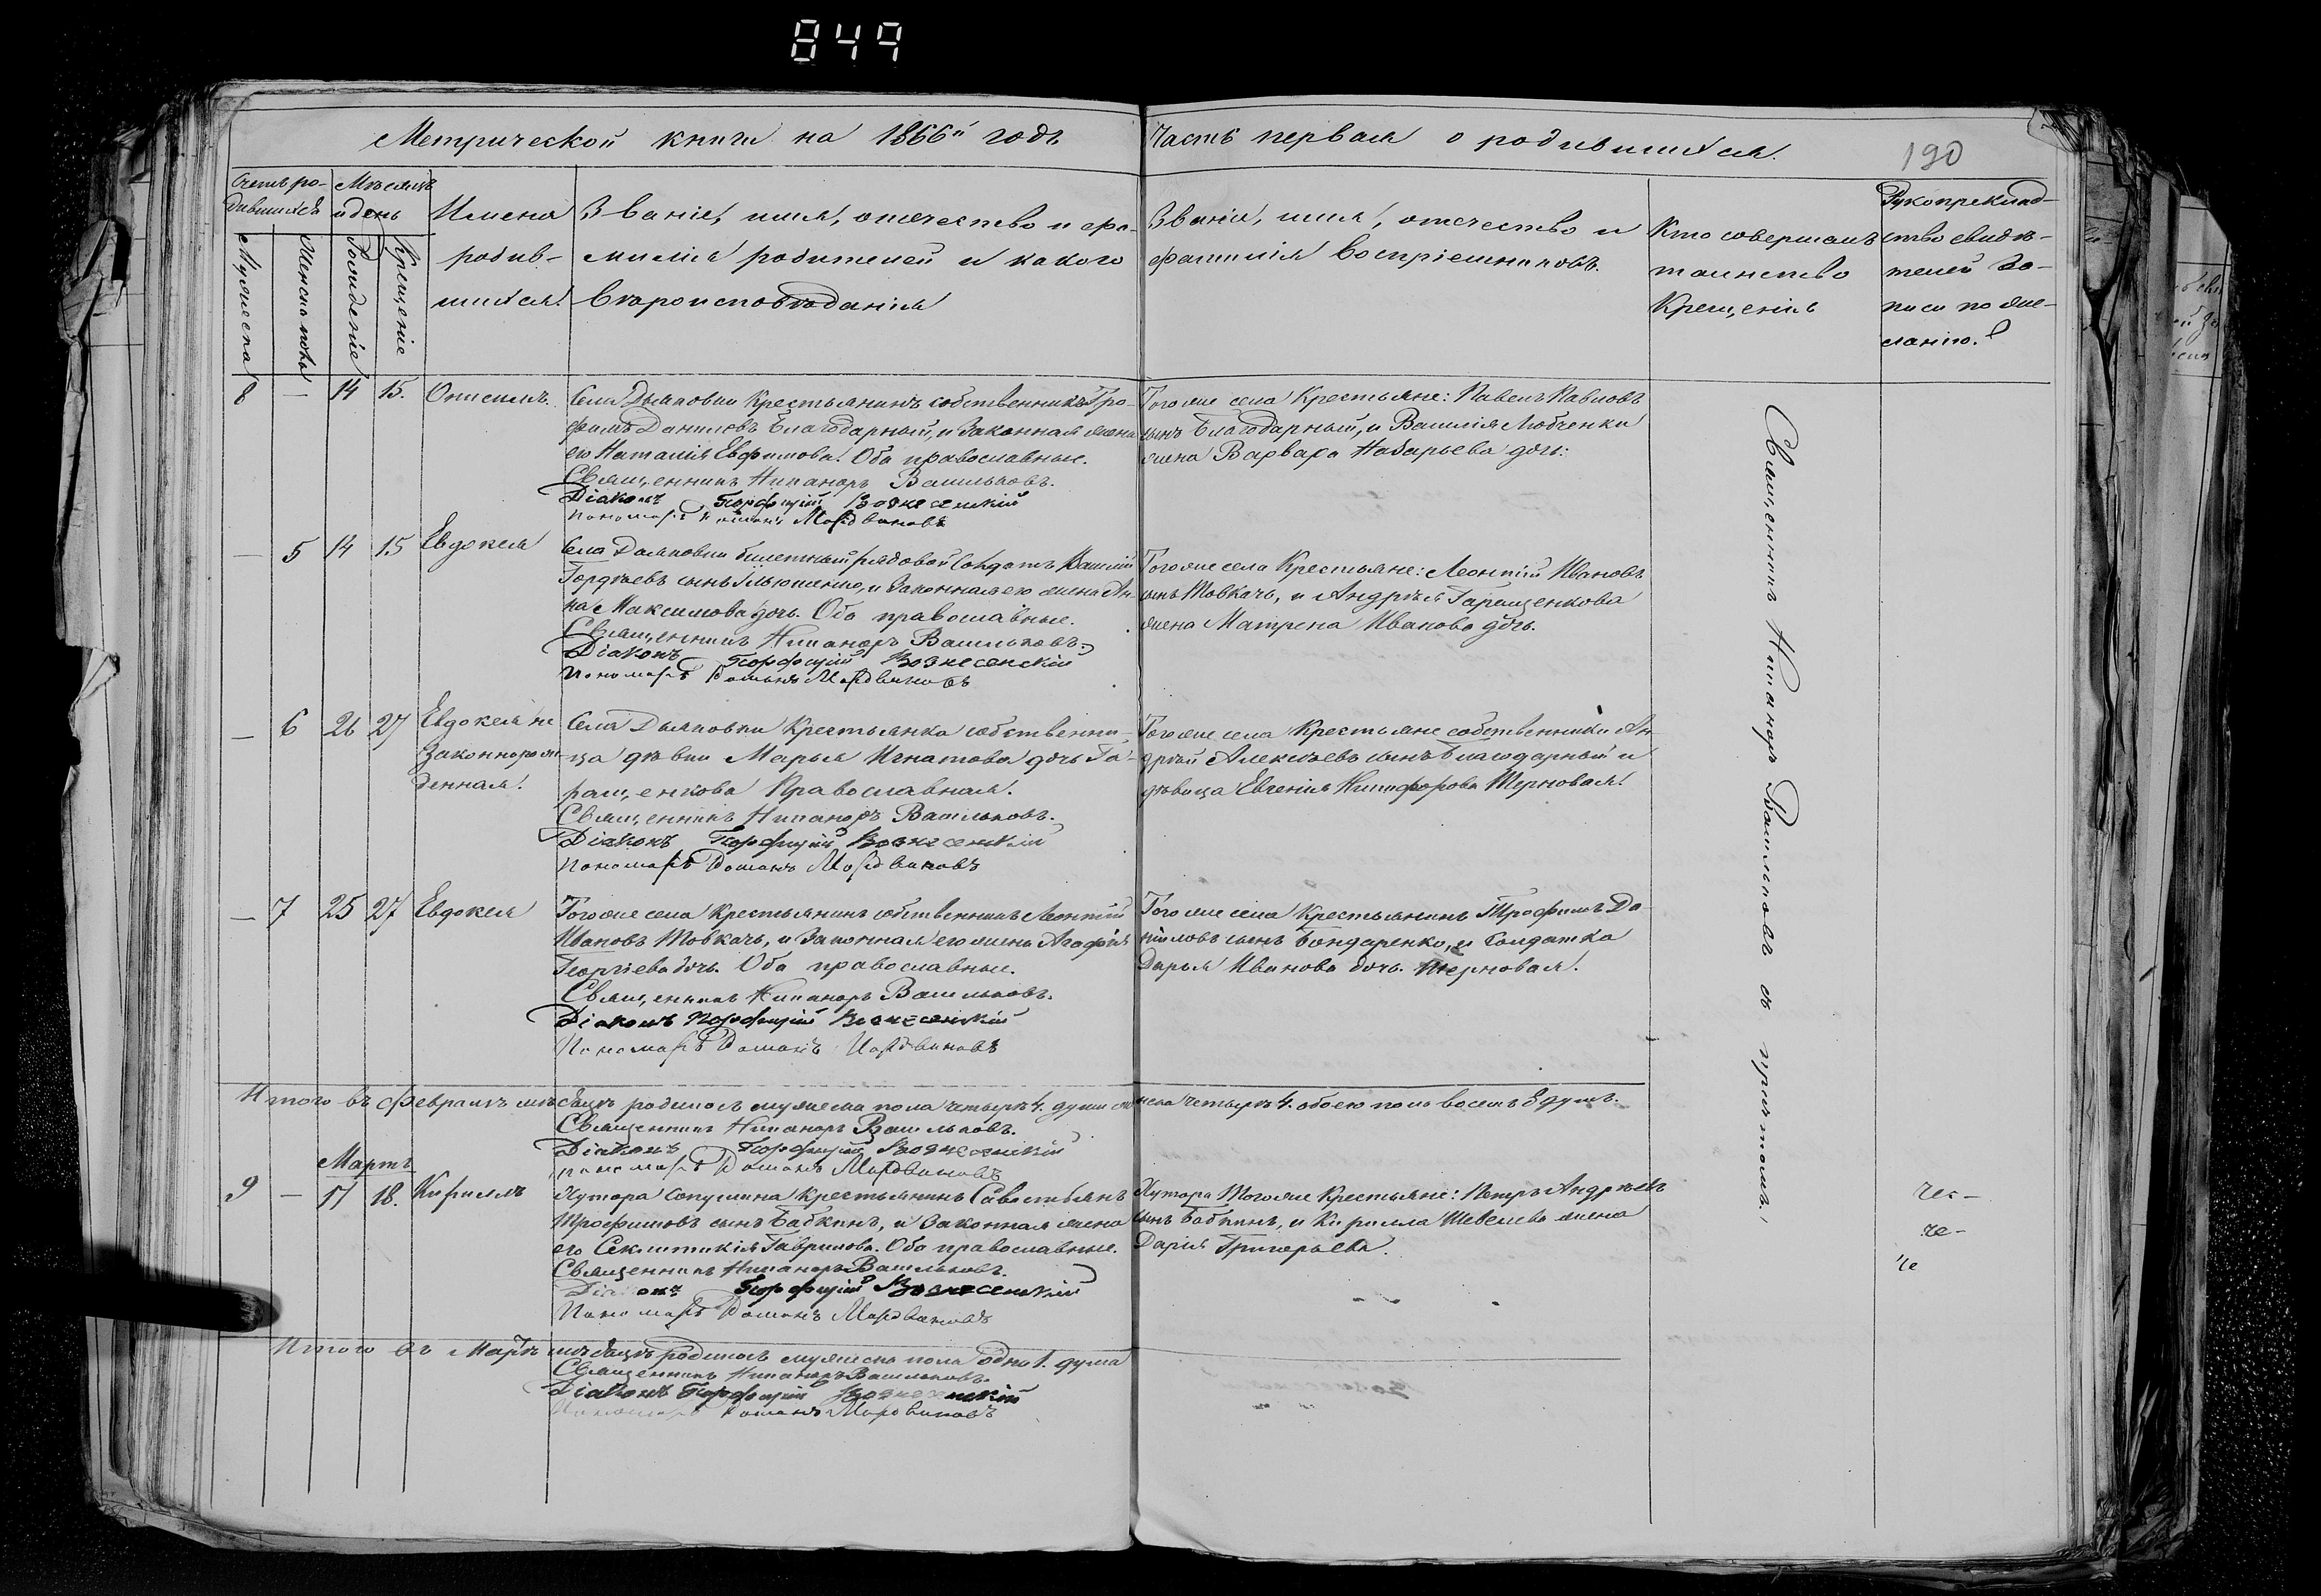 849
Метрической книги на 1866й годъ
Часть первая о родившихся.
190
Счетъ ро-
дившихся
Мужеска
Женска пола
Мѣсяцъ
и день
Рожденіе
Крещеніе
Имена
родив-
шихся.
Званіе, имя, отчество и фа-
милія родителей и какого
вѣроисповѣданія
Званіе, имя, отчество и
фамилія воспріемниковъ.
Кто совершалъ
таинство
Крещенія
Рукоприклад-
ство свидѣ-
телей за-
писи по же-
ланію.
8 — 14 15. Онисимъ
Села Дьяковки Крестьянинъ собственникъ Тро-
фимъ Даниловъ Благодарный, и Законная жена
его Наталія Евфимова. Оба православные.
Священникъ Никаноръ Васильковъ.
Діаконъ Порфирій Вознесенскій
Пономарь Романъ Мордвиновъ
Того же села Крестьяне: Павелъ Павловъ
сынъ Благодарный, и Василія Любченки
жена Варвара Назарьева дочь:
— 5 14 15 Евдокея
Села Дьяковки билетный рядовой Солдатъ Василій
Гордѣевъ сынъ Ильюшенко, и Законная его жена Ан-
на Максимова дочь. Оба православные.
Священникъ Никаноръ Васильковъ.
Діаконъ Порфирій Вознесенскій
Пономарь Романъ Мордвиновъ
Того же села Крестьяне: Леонтій Ивановъ
сынъ Товкачь, и Андрѣя Геращенкова
жена Матрена Иванова дочь.
— 6 26 27 Евдокея не
законнорож-
денная.
Села Дьяковки Крестьянка собственни-
ца дѣвки Марья Игнатова дочь Га-
ращенкова Православная.
Священникъ Никаноръ Васильковъ.
Діаконъ Порфирій Вознесенскій
Пономарь Романъ Мордвиновъ
Того же села Крестьяне собственники Ан-
дрей Алексѣевъ сынъ Благодарный и
дѣвица Евгенія Никифорова Терновая.
— 7 25 27 Евдокея
Того же села Крестьянинъ собственникъ Леонтій
Ивановъ Товкачь, и Законная его жена Агафія
Георгіева дочь. Оба православные.
Священникъ Никаноръ Васильковъ.
Діаконъ Порфирій Вознесенскій
Пономарь Романъ Мордвиновъ
Того же села Крестьянинъ Трофимъ Да-
ниловъ сынъ Бондаренко, и Солдатка
Дарья Иванова дочь. Терновая.
Итого въ Февралѣ мѣсяцѣ родилось мужеска пола четыре 4. души женска четыре 4. обоего пола восемь 8 душъ.
Священникъ Никаноръ Васильковъ.
Діаконъ Порфирій Вознесенскій
Пономарь Романъ Мордвиновъ
Мартъ
9 — 17 18. Кириллъ
Хутора Крестьянинъ Савостьянъ
Трофимовъ сынъ Бабкинъ, и Законная жена
его Секлитикія Гаврилова. Оба православные.
Священникъ Никаноръ Васильковъ.
Діаконъ Порфирій Вознесенскій
Пономарь Романъ Мордвиновъ
Хутора Того же Крестьяне: Петръ Андрѣевъ
сынъ Бабкинъ, и Кирилла Шевелева жена
Дарія Григорьева.
Итого въ Мартѣ мѣсяцѣ родилось мужеска пола одна 1. душа
Священникъ Никаноръ Васильковъ.
Діаконъ Порфирій Вознесенскій
Пономарь Романъ Мордвиновъ
Священникъ Никаноръ Васильковъ съ причтомъ.